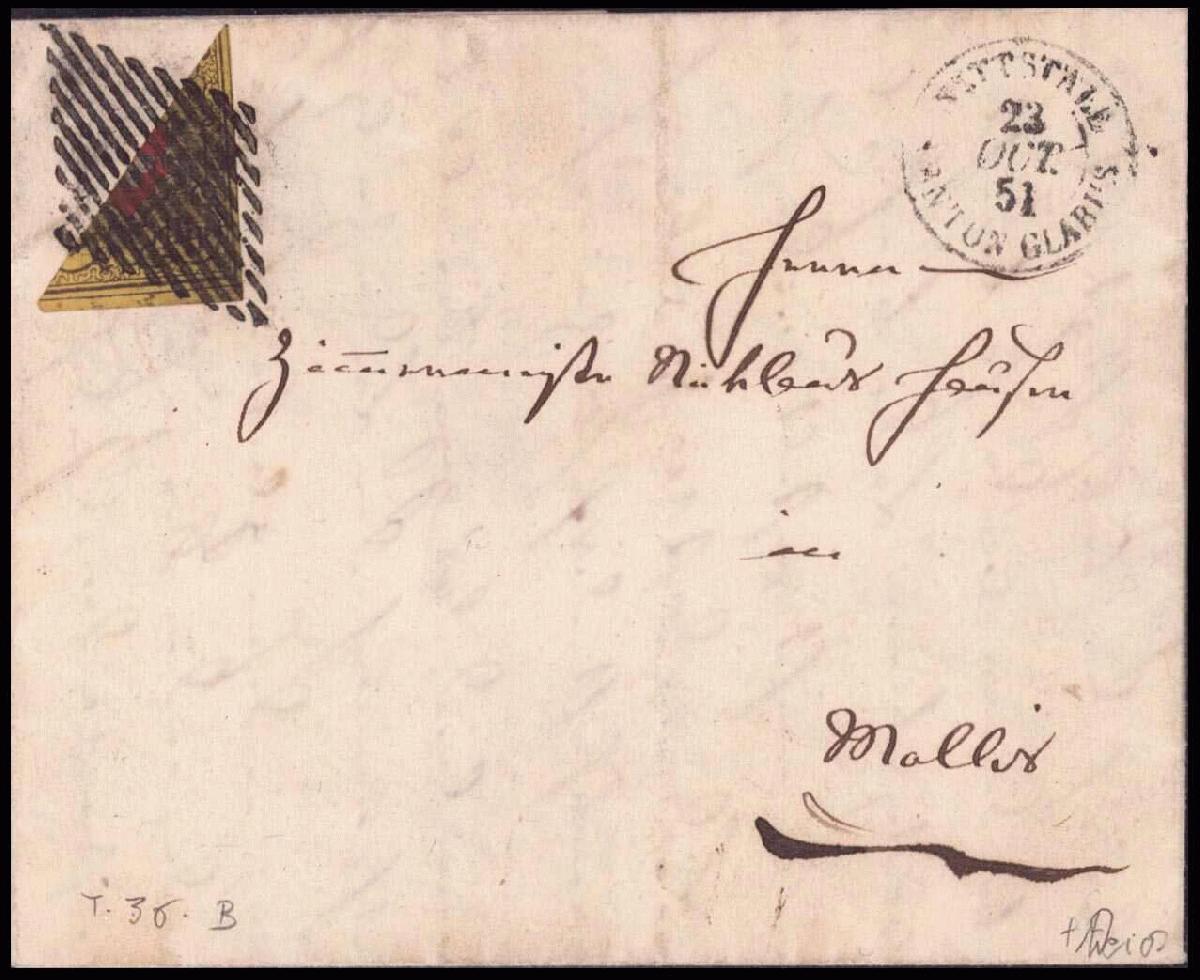 NETTSTALL
23
OCT.
51
CANTON GLARUS
Herren
Zimmermeister Niklaus
in
Mollis
T. 36. B